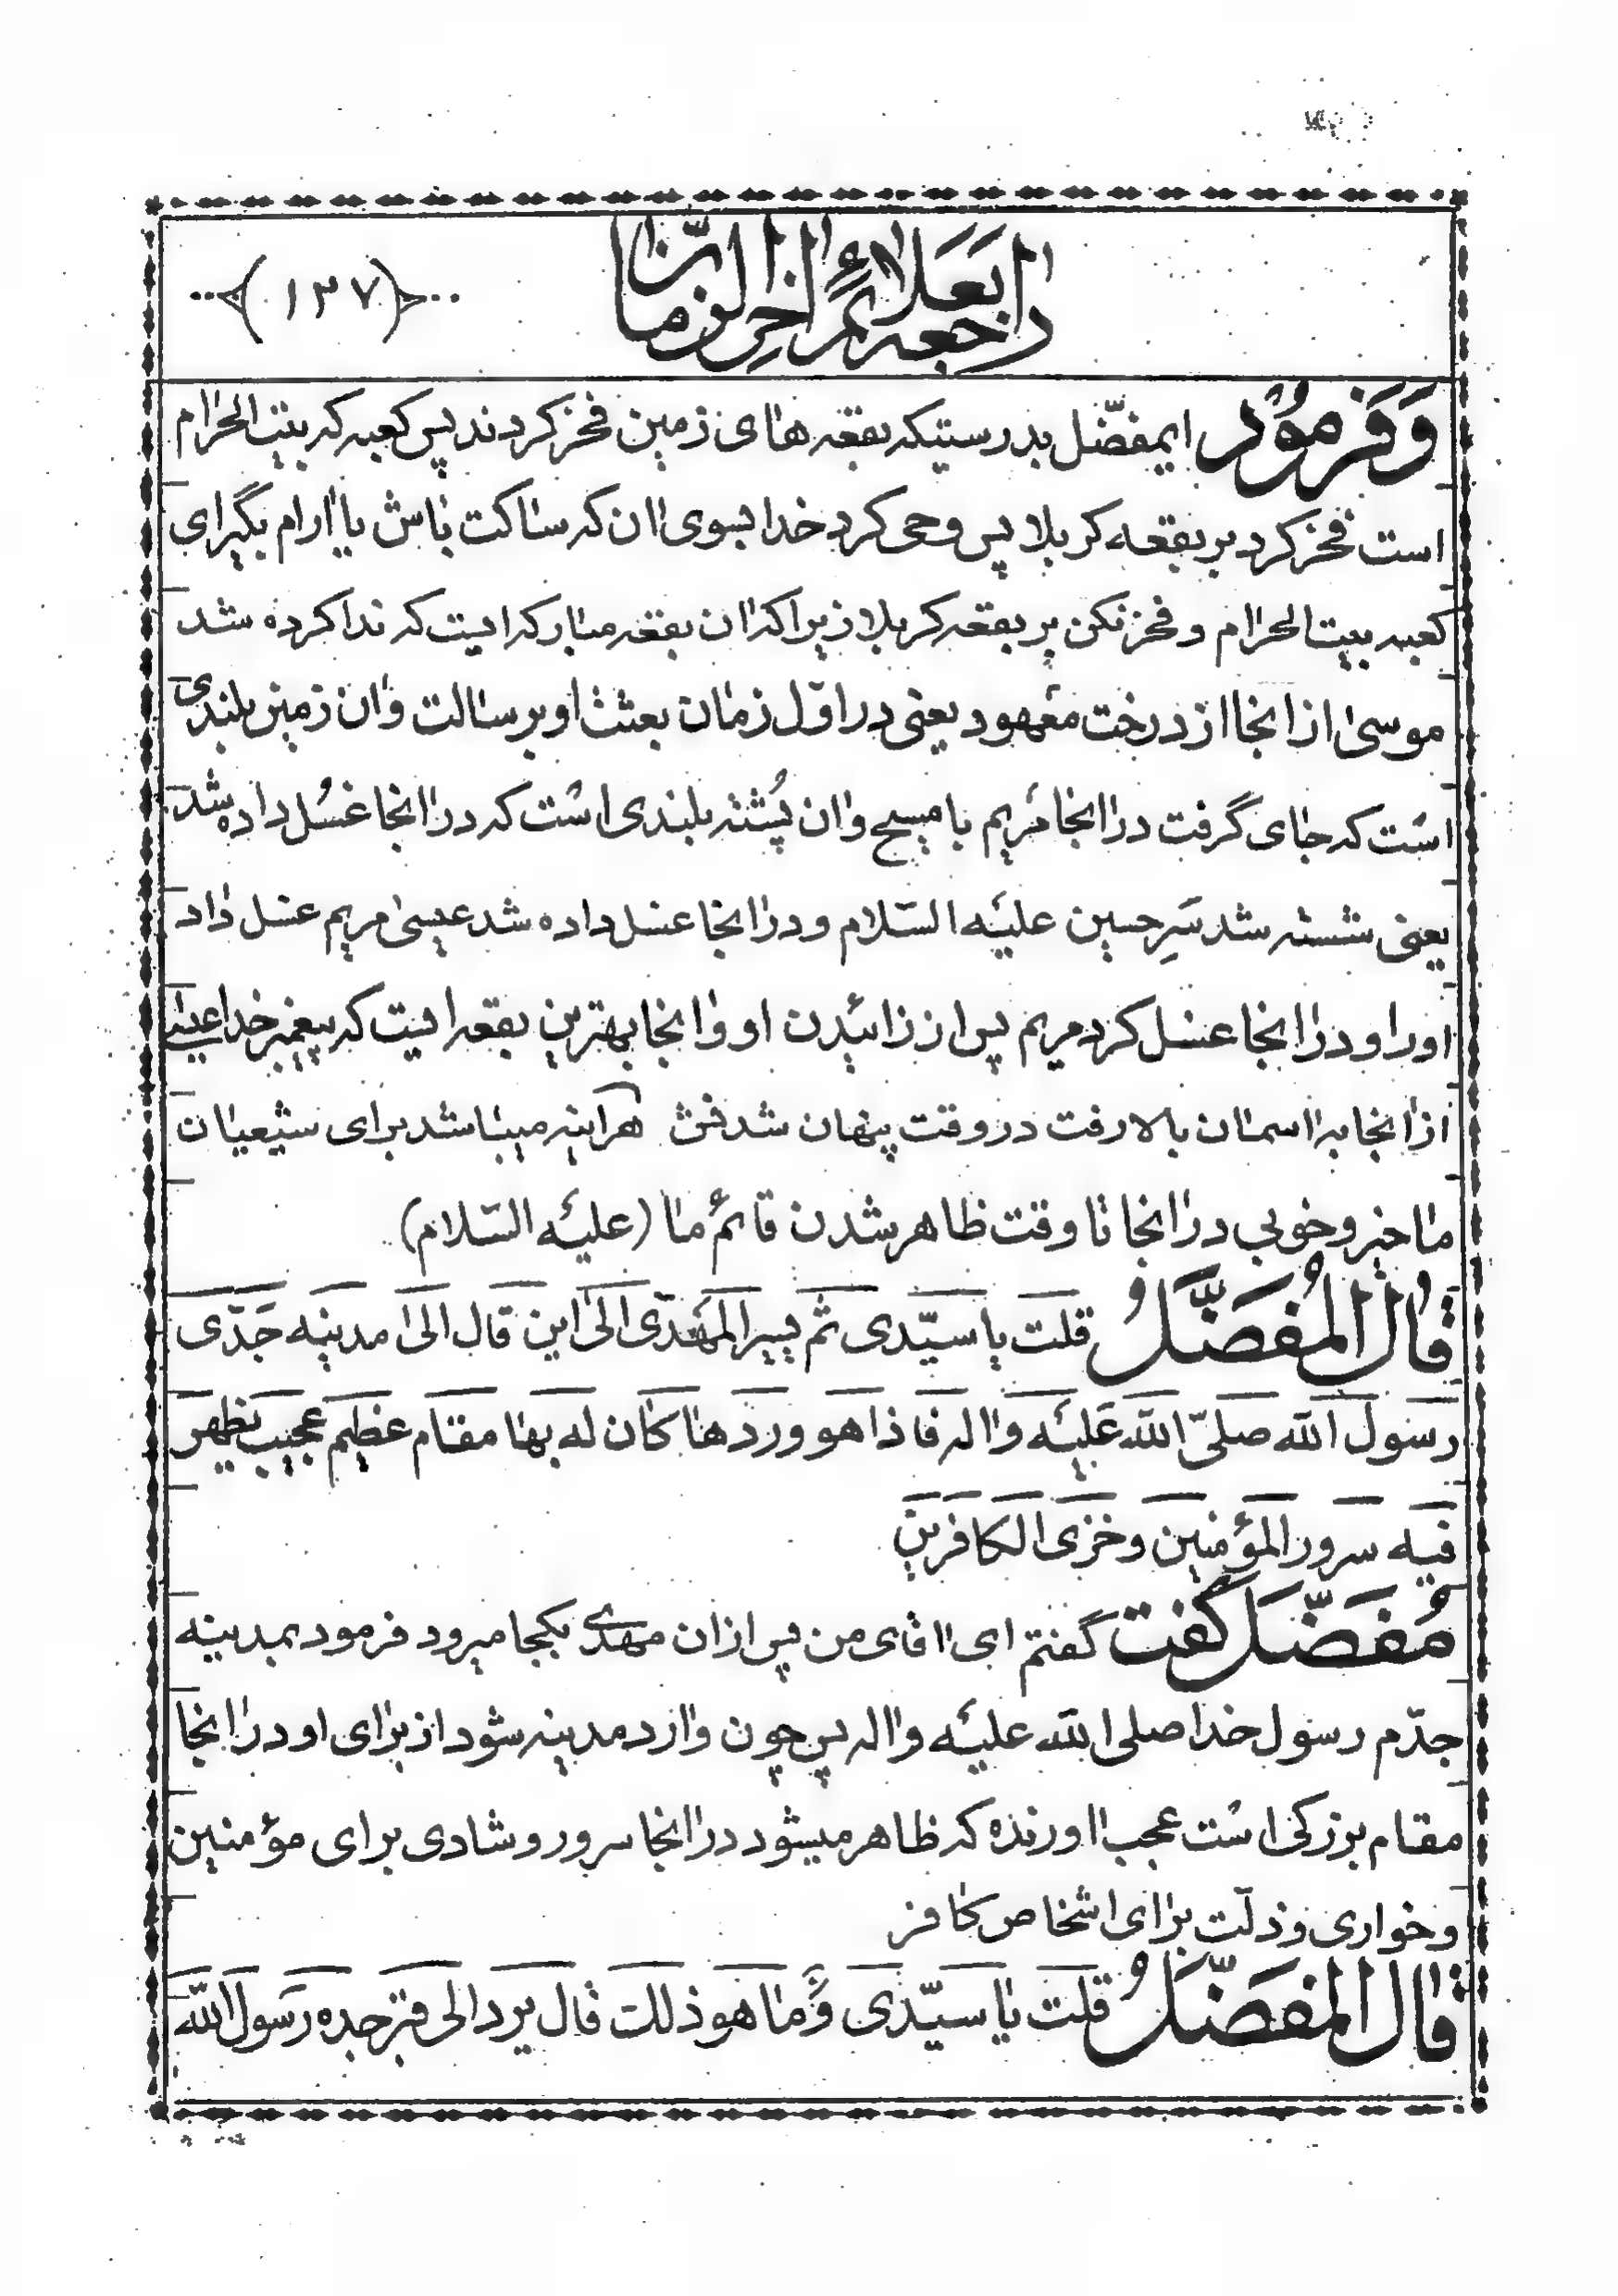 راجعه بعلائم اخر الزمان
(۱۳۷)
وَفَرمُود ایمفضّل بدرستیکه بقعه های زمین فخر کردند پس کعبه که بیت الحرام
است فخر کرد بر بقعه کربلا پس وحی کرد خدا بسوی اان که ساکت باش یا اارام بگیر ای
کعبه بیت الحرام و فخر نکن بر بقعه کربلا زیرا که اان بقعه مبارکه ایست که ندا کرده شد
موسی از اانجا از درخت معهود یعنی در اوّل زمان بعثت او برسالت و اان زمین بلندی
است که جای گرفت در اانجا مریم با مسیح و اان پُشته بلندی است که در اانجا غسُل داده شد
یعنی شسته شد سَرِ حسین علیه السّلام و در اانجا غسل داده شد عیسی مریم غسل داد
او را و در اانجا غسل کرد مریم پس از زائیدن او و اانجا بهترین بقعه ایست که پیغمبر خدا عیسی
از اانجا به ااسمان بالا رفت در وقت پنهان شدنش هراینه میباشد برای شیعیان
ما خیر و خوبی در اانجا تا وقت ظاهر شدن قائم ما (علیه السّلام)
قال المُفَضَّلُ قلت یا سیّدی ثم یسیر المهدی الی این قال الی مدینه جَدّی
رسول الله صلّی الله عَلیه و االه فاذا هو وردها کان له بها مقام عظیم عجیب یظهر
فیه سرور المؤمنین و خزی الکافرین
مُفَضّل گفت گفتم ای ااقای من پس از اان مهدی بکجا میرود فرمود بمدینه
جدّم رسول خدا صلی الله علیه و االه پس چون وارد مدینه شود از برای او در اانجا
مقام بزرکی است عجب ااورنده که ظاهر میشود در اانجا سرور و شادی برای مؤمنین
و خواری و ذلّت برای اشخاص کافر
قال المفضّلُ قلت یا سیّدی وَ ما هو ذلک قال یرد الی قبر جده رَسول الله